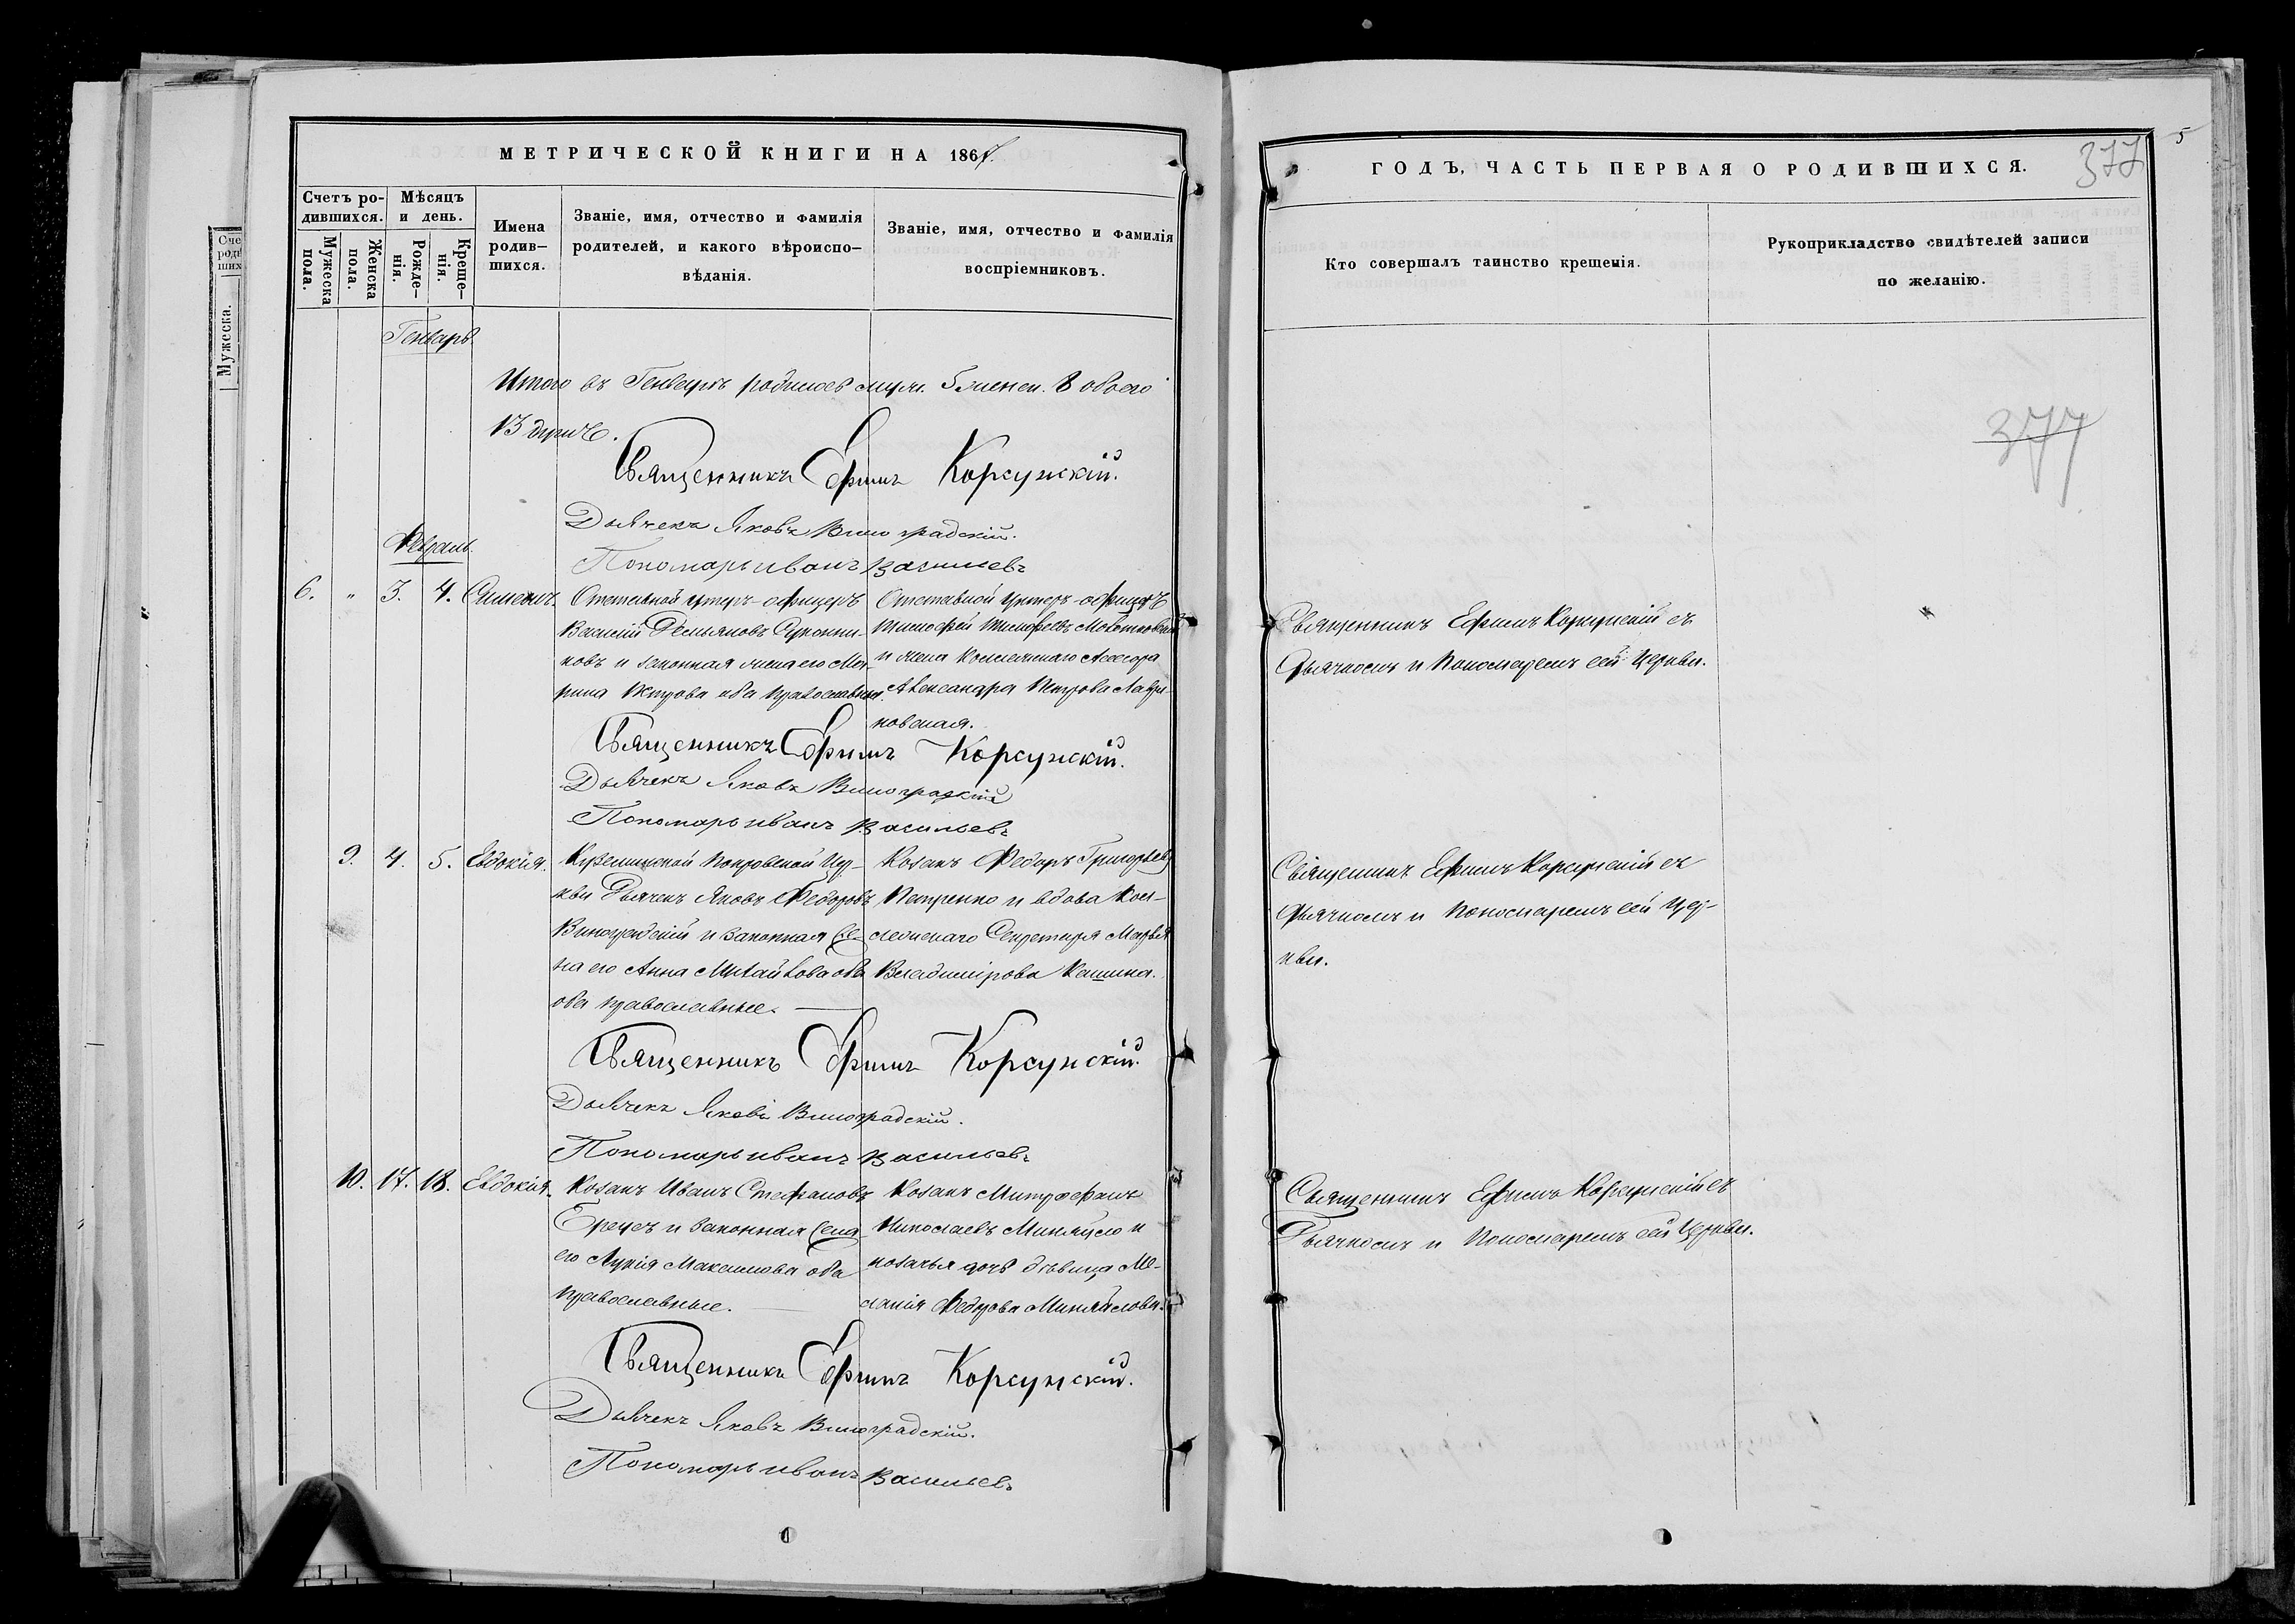 МЕТРИЧЕСКОЙ КНИГИ НА 186
Счетъ ро-
дившихся.
Мужеска
пола.
Женска
пола.
Мѣсяцъ
и день.
Рожде-
нія.
Креще-
нія.
Имена
родив-
шихся.
Званіе, имя, отчество и фамилія
родителей, и какого вѣроиспо-
вѣданія.
Званіе, имя, отчество и фамилія
воспріемниковъ.
Генварь
Итого въ Генварѣ родилось муж. 5 женск. 8 обоего
13 душъ.
Священникъ Ефимъ Корсунскій.
Дьячекъ Яковъ Виноградскій.
Пономарь Иванъ Васильевъ
Февраль.
6. " 3. 4. Симеонъ.
Отставной Унтеръ-офицеръ
Василій Демьяновъ
и законная жена его Ма-
рина Петрова оба православные.
Отставной Унтеръ-офицеръ
Тимофей Тимофеевъ
и жена Коллежнаго Асессора
Александра Петрова Лаври-
новская.
Священникъ Ефимъ Корсунскій.
Дьячекъ Яковъ Виноградскій
Пономарь Иванъ Васильевъ
9. 4. 5. Евдокія.
Покровской Цер-
кви Дьячекъ Яковъ Федоровъ
Виноградскій и законная Же-
на его Анна Михайлова оба
оба православные.
Козакъ Федоръ Григорьевъ
Петренко и вдова Кол-
лежскаго Секретаря Марья
Владимірова Кашина.
Священникъ Ефимъ Корсунскій.
Дьячекъ Яковъ Виноградскій.
Пономарь Иванъ Васильевъ
10. 17. 18. Евдокія.
Козакъ Иванъ Стефановъ
и законная Жена
его Лукія Максимова оба
православные.
Козакъ Митрофанъ
Николаевъ и
козачья дочь дѣвица Ме-
ланія Федорова
Священникъ Ефимъ Корсунскій.
Дьячекъ Яковъ Виноградскій.
Пономарь Иванъ Васильевъ
ГОДЪ, ЧАСТЬ ПЕРВАЯ О РОДИВШИХСЯ.
377
5
Кто совершалъ таинство крещенія.
Рукоприкладство свидѣтелей записи
по желанію.
377
Священникъ Ефимъ Корсунскій съ
Дьячкомъ и Пономаремъ сей Церкви.
Священникъ Ефимъ Корсунскій съ
Дьячкомъ и Пономаремъ сей Цер-
кви.
Священникъ Ефимъ Корсунскій съ
Дьячкомъ и Пономаремъ сей Церкви.
Мужеска.